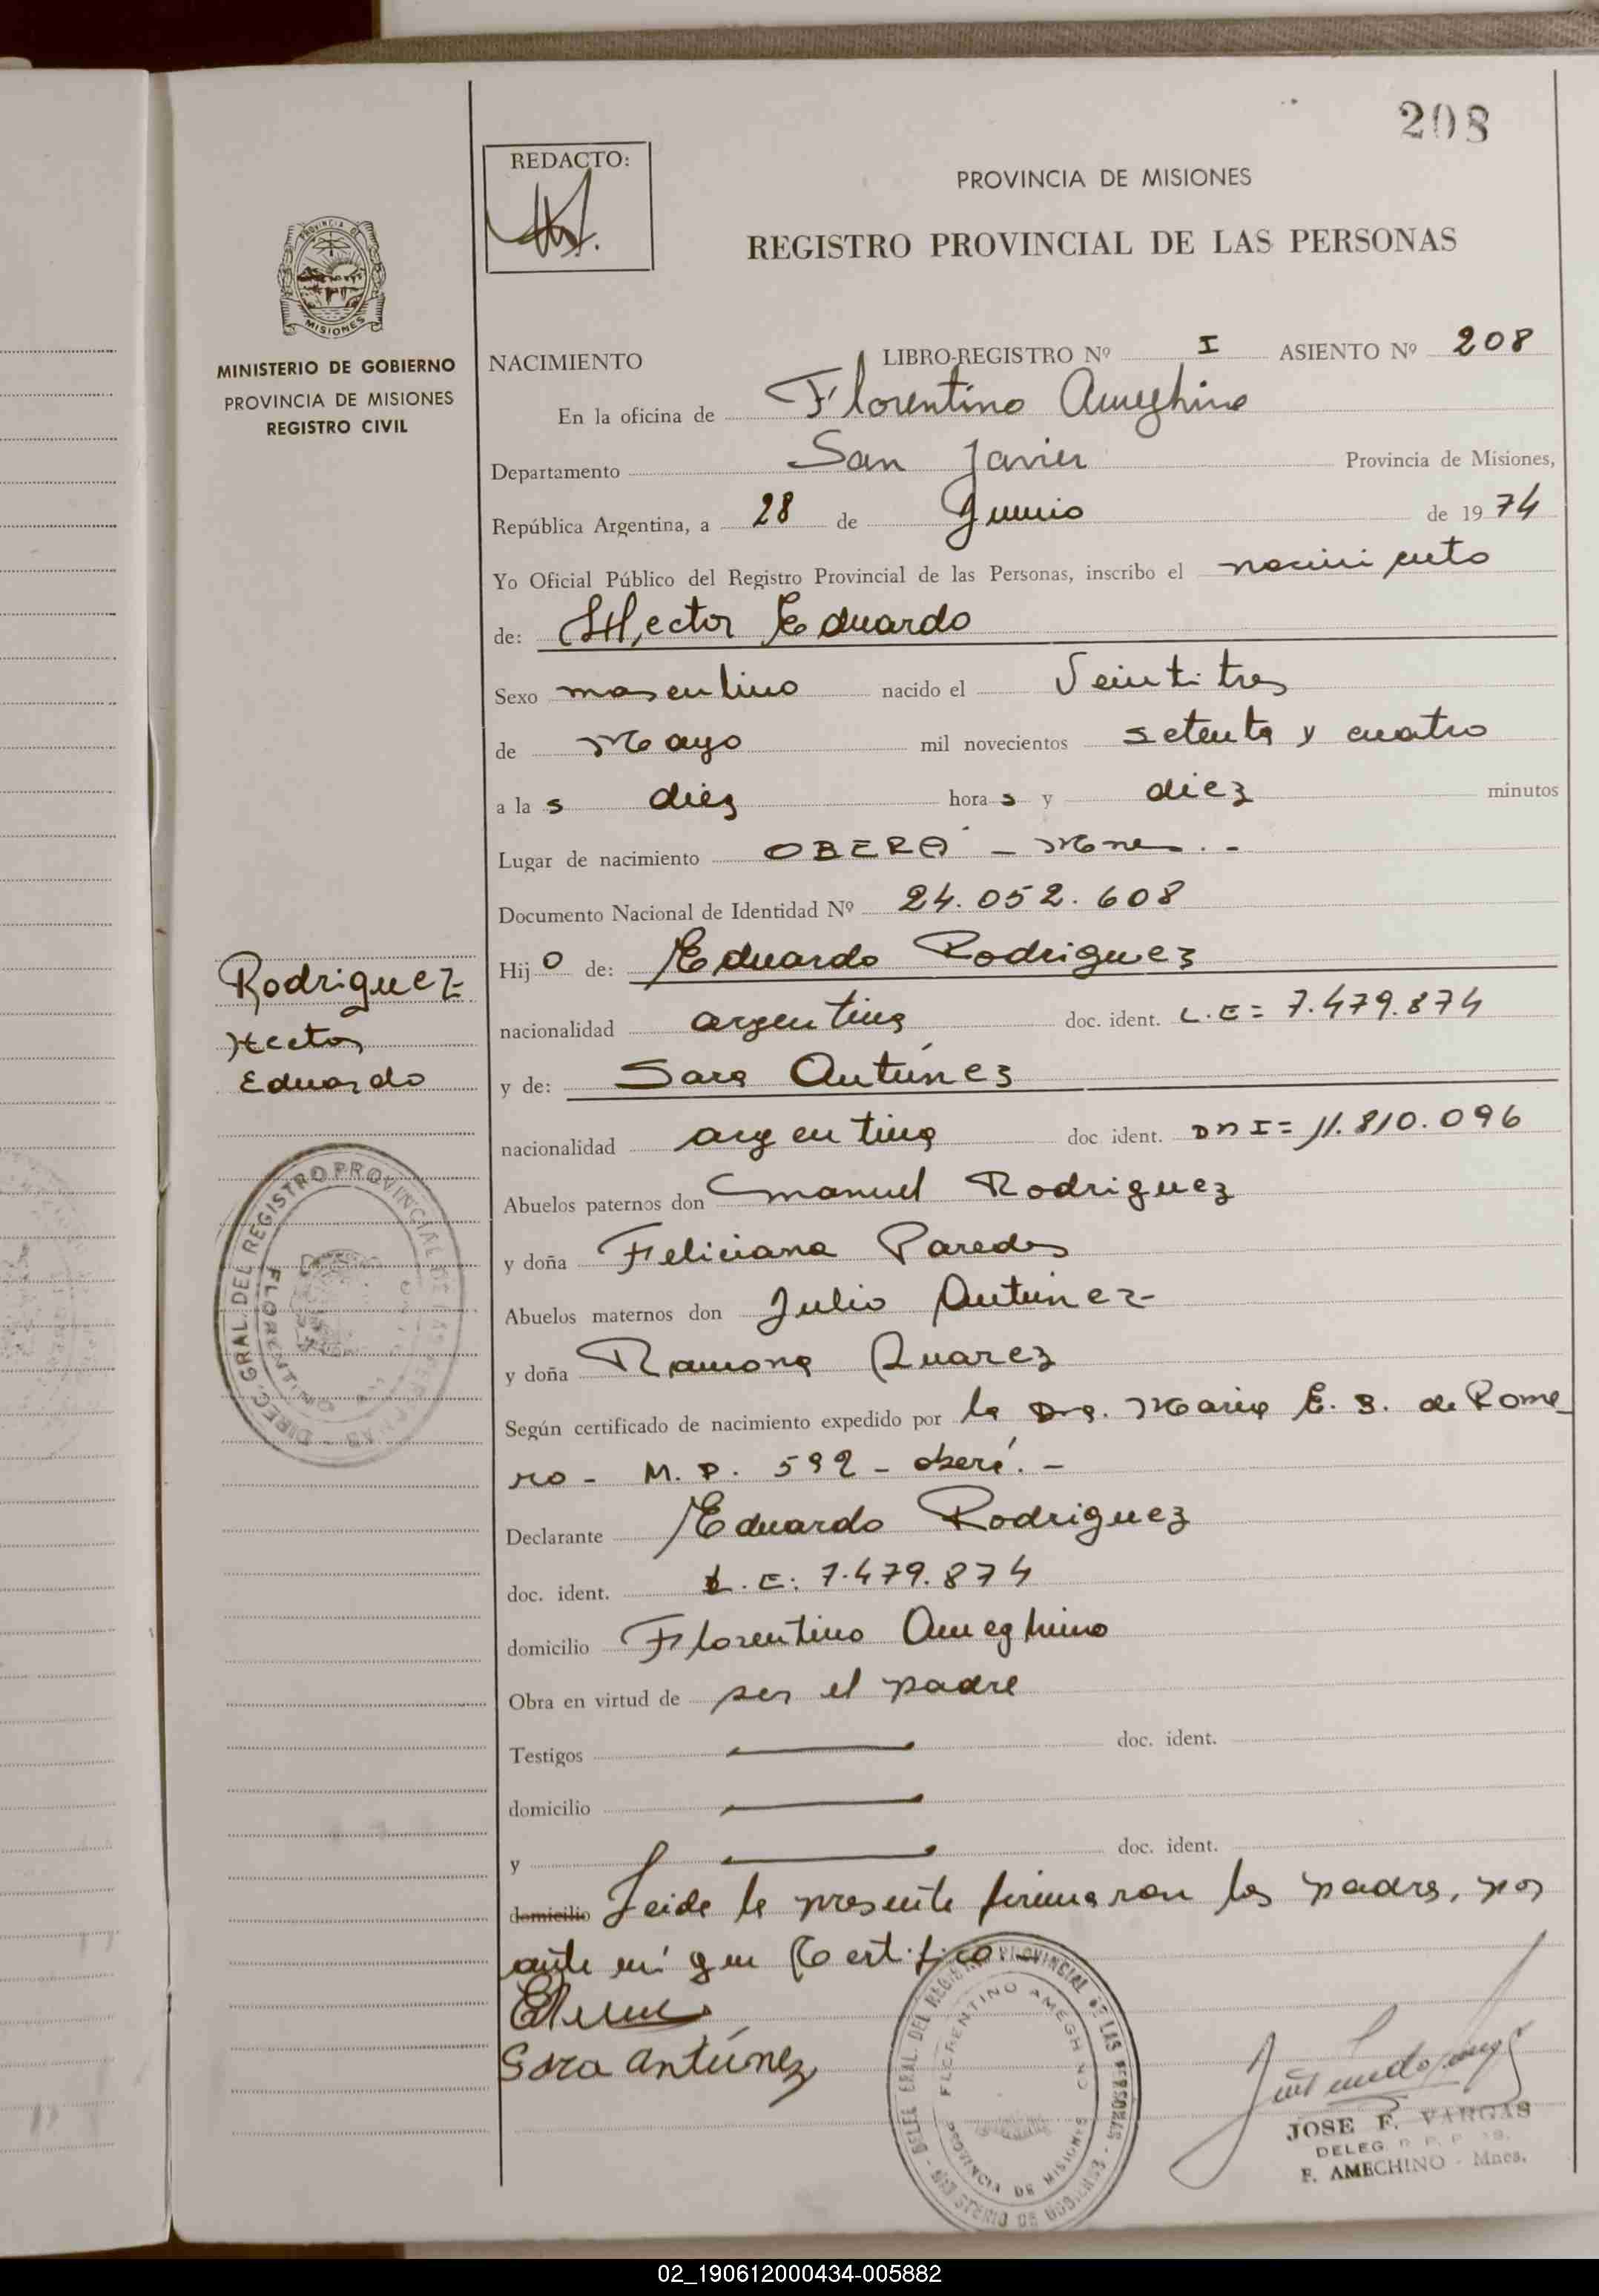 208
REDACTO:
PROVINCIA DE MISIONES
REGISTRO PROVINCIAL DE LAS PERSONAS
PROVINCIA DE
MISIONES
MINISTERIO DE GOBIERNO
PROVINCIA DE MISIONES
REGISTRO CIVIL
NACIMIENTO LIBRO-REGISTRO Nº I ASIENTO Nº 208
En la oficina de Florentino Ameghino
Departamento San Javier Provincia de Misiones,
República Argentina, a 28 de Junio de 1974
Yo Oficial Público del Registro Provincial de las Personas, inscribo el nacimiento
de: Hector Eduardo
Sexo masculino nacido el Veintitres
de Mayo mil novecientos setenta y cuatro
a la s diez hora s y diez minutos
Lugar de nacimiento OBERÁ - Mnes. -
Documento Nacional de Identidad Nº 24.052.608
Hijo de: Eduardo Rodriguez
nacionalidad argentina doc. ident. L.E= 7.479.874
y de: Sara Antúnez
nacionalidad argentina doc ident. DNI= 11.810.096
Abuelos paternos don Manuel Rodriguez
y doña Feliciana Paredes
Abuelos maternos don Julio Antúnez
y doña Ramona Suarez
Según certificado de nacimiento expedido por la Dra. Maria E. B. de Rome_
ro - M.P. 592 - Oberá. -
Declarante Eduardo Rodriguez
doc. ident. L.E: 7.479.874
domicilio Florentino Ameghino
Obra en virtud de ser el padre
Testigos doc. ident.
domicilio
y doc. ident.
domicilio Leida la presente firmaron los padres, por
ante mí que Certifico -
Sara Antúnez
Rodriguez
Hector
Eduardo
DIREC. GRAL. DEL REGISTRO PROVINCIAL DE LAS PERSONAS
FLORENTINO
DELEG. GRAL. DEL REGISTRO PROVINCIAL DE LAS PERSONAS - MINISTERIO DE GOBIERNO
FLORENTINO AMEGHINO
PROVINCIA DE MISIONES
JOSE F. VARGAS
DELEG. R. P. P.
F. AMECHINO - Mnes.
02_190612000434-005882